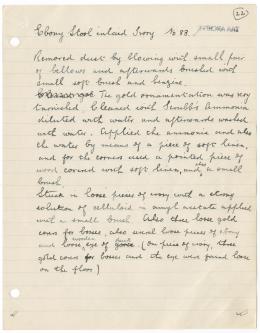 22
Ebony Stool inlaid Ivory No 83.
Removed dust by blowing with small pair
of bellows and afterwards brushed with
small soft brush and benzine.
The gold ornamentation was very
tarnished. Cleaned with Scrubbs Ammonia
diluted with water and afterwards washed
with water. Applied the ammonia and also
the water by means of a piece of soft linen,
and for the corners used a pointed piece of
wood covered with soft linen, and also a small
brush.
Stuck in loose pieces of ivory with a strong
solution of celluloid in amyl acetate applied
with a small brush. Also three loose gold
cons for bosses, also several loose pieces of ebony
and loose wooden eye of duck (One piece of ivory, three
gold cons for bosses and the eye were found loose
on the floor)